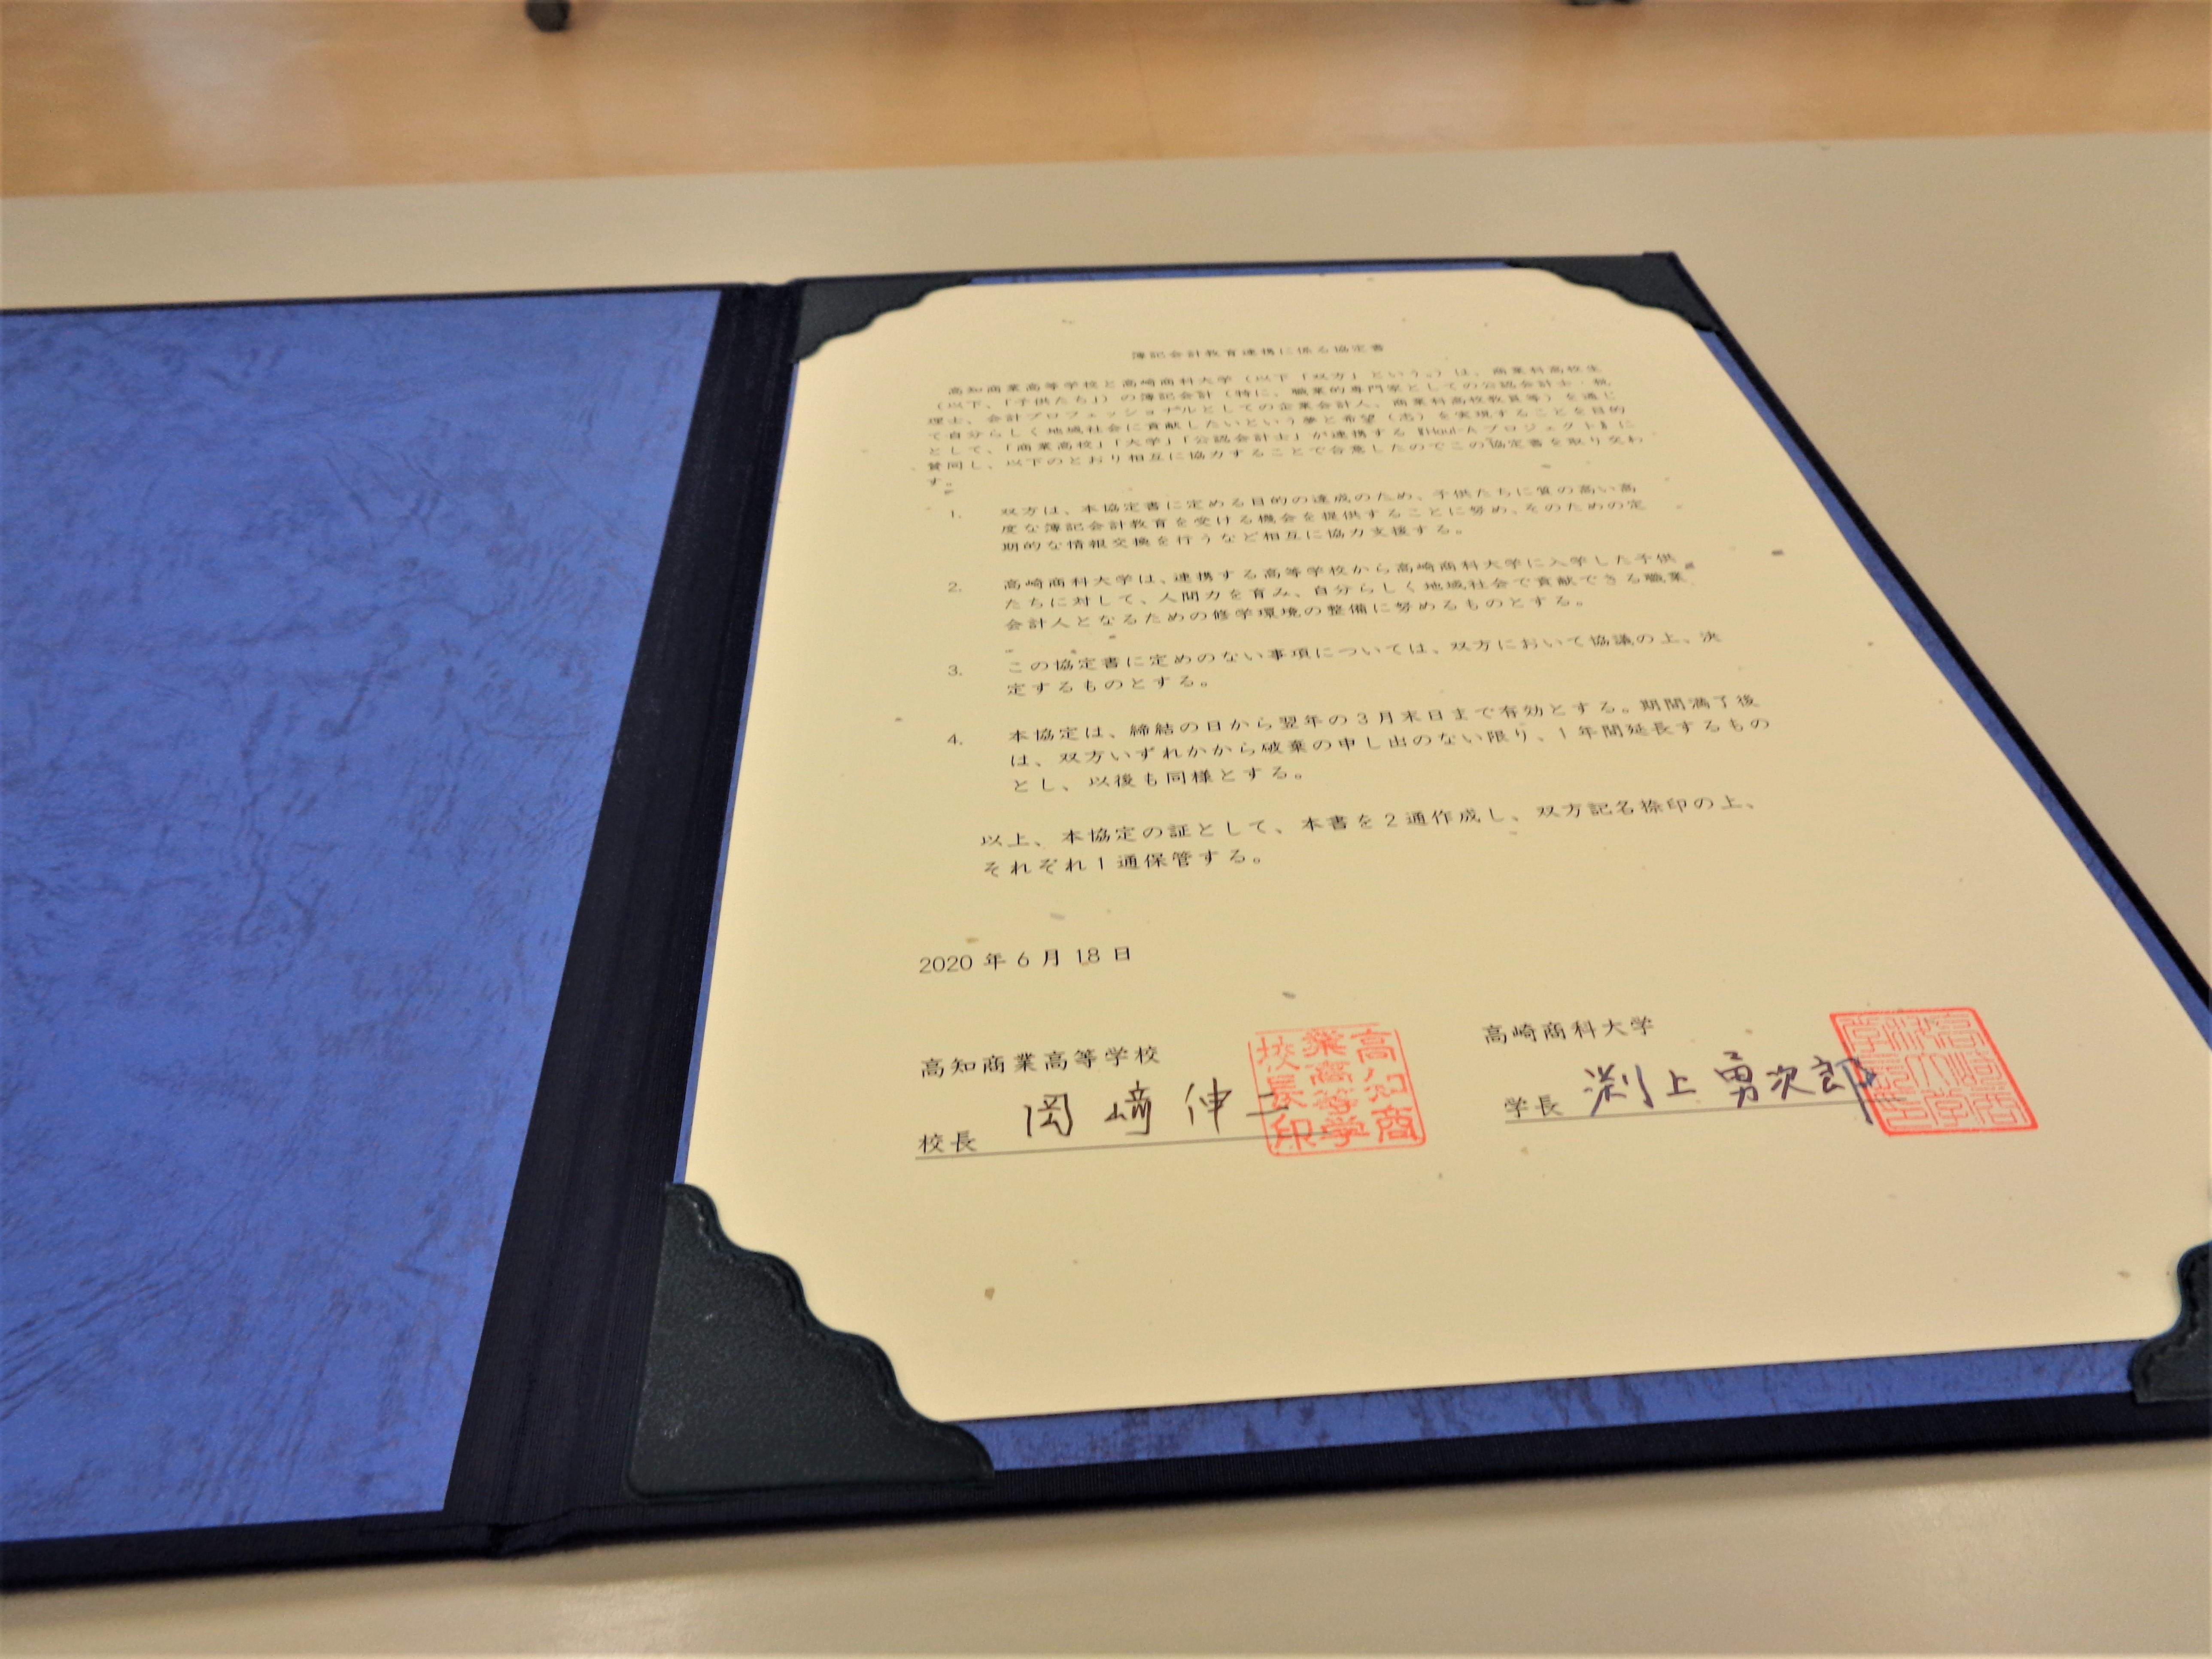 簿記会計教育連携に係る協定書
高知商業高等学校と高崎商科大学（以下「双方」という。）は、商業科高校生
（以下、「子供たち」）の簿記会計（特に、職業的専門家としての公認会計士・税
理士、会計プロフェッショナルとしての企業会計人、商業科高校教員等）を通じ
て自分らしく地域社会に貢献したいという夢と希望（志）を実現することを目的
として、「商業高校」「大学」「公認会計士」が連携する『Haul-Aプロジェクト』に
賛同し、以下のとおり相互に協力することで合意したのでこの協定書を取り交わ
す。
1. 双方は、本協定書に定める目的の達成のため、子供たちに質の高い高
度な簿記会計教育を受ける機会を提供することに努め、そのための定
期的な情報交換を行うなど相互に協力支援する。
2. 高崎商科大学は、連携する高等学校から高崎商科大学に入学した子供
たちに対して、人間力を育み、自分らしく地域社会で貢献できる職業
会計人となるための修学環境の整備に努めるものとする。
3. この協定書に定めのない事項については、双方において協議の上、決
定するものとする。
4. 本協定は、締結の日から翌年の3月末日まで有効とする。期間満了後
は、双方いずれかから破棄の申し出のない限り、1年間延長するもの
とし、以後も同様とする。
以上、本協定の証として、本書を2通作成し、双方記名捺印の上、
それぞれ1通保管する。
2020年6月18日
高知商業高等学校
校長 岡﨑伸二
高知商業高等学校長印
高崎商科大学
学長 渕上勇次郎